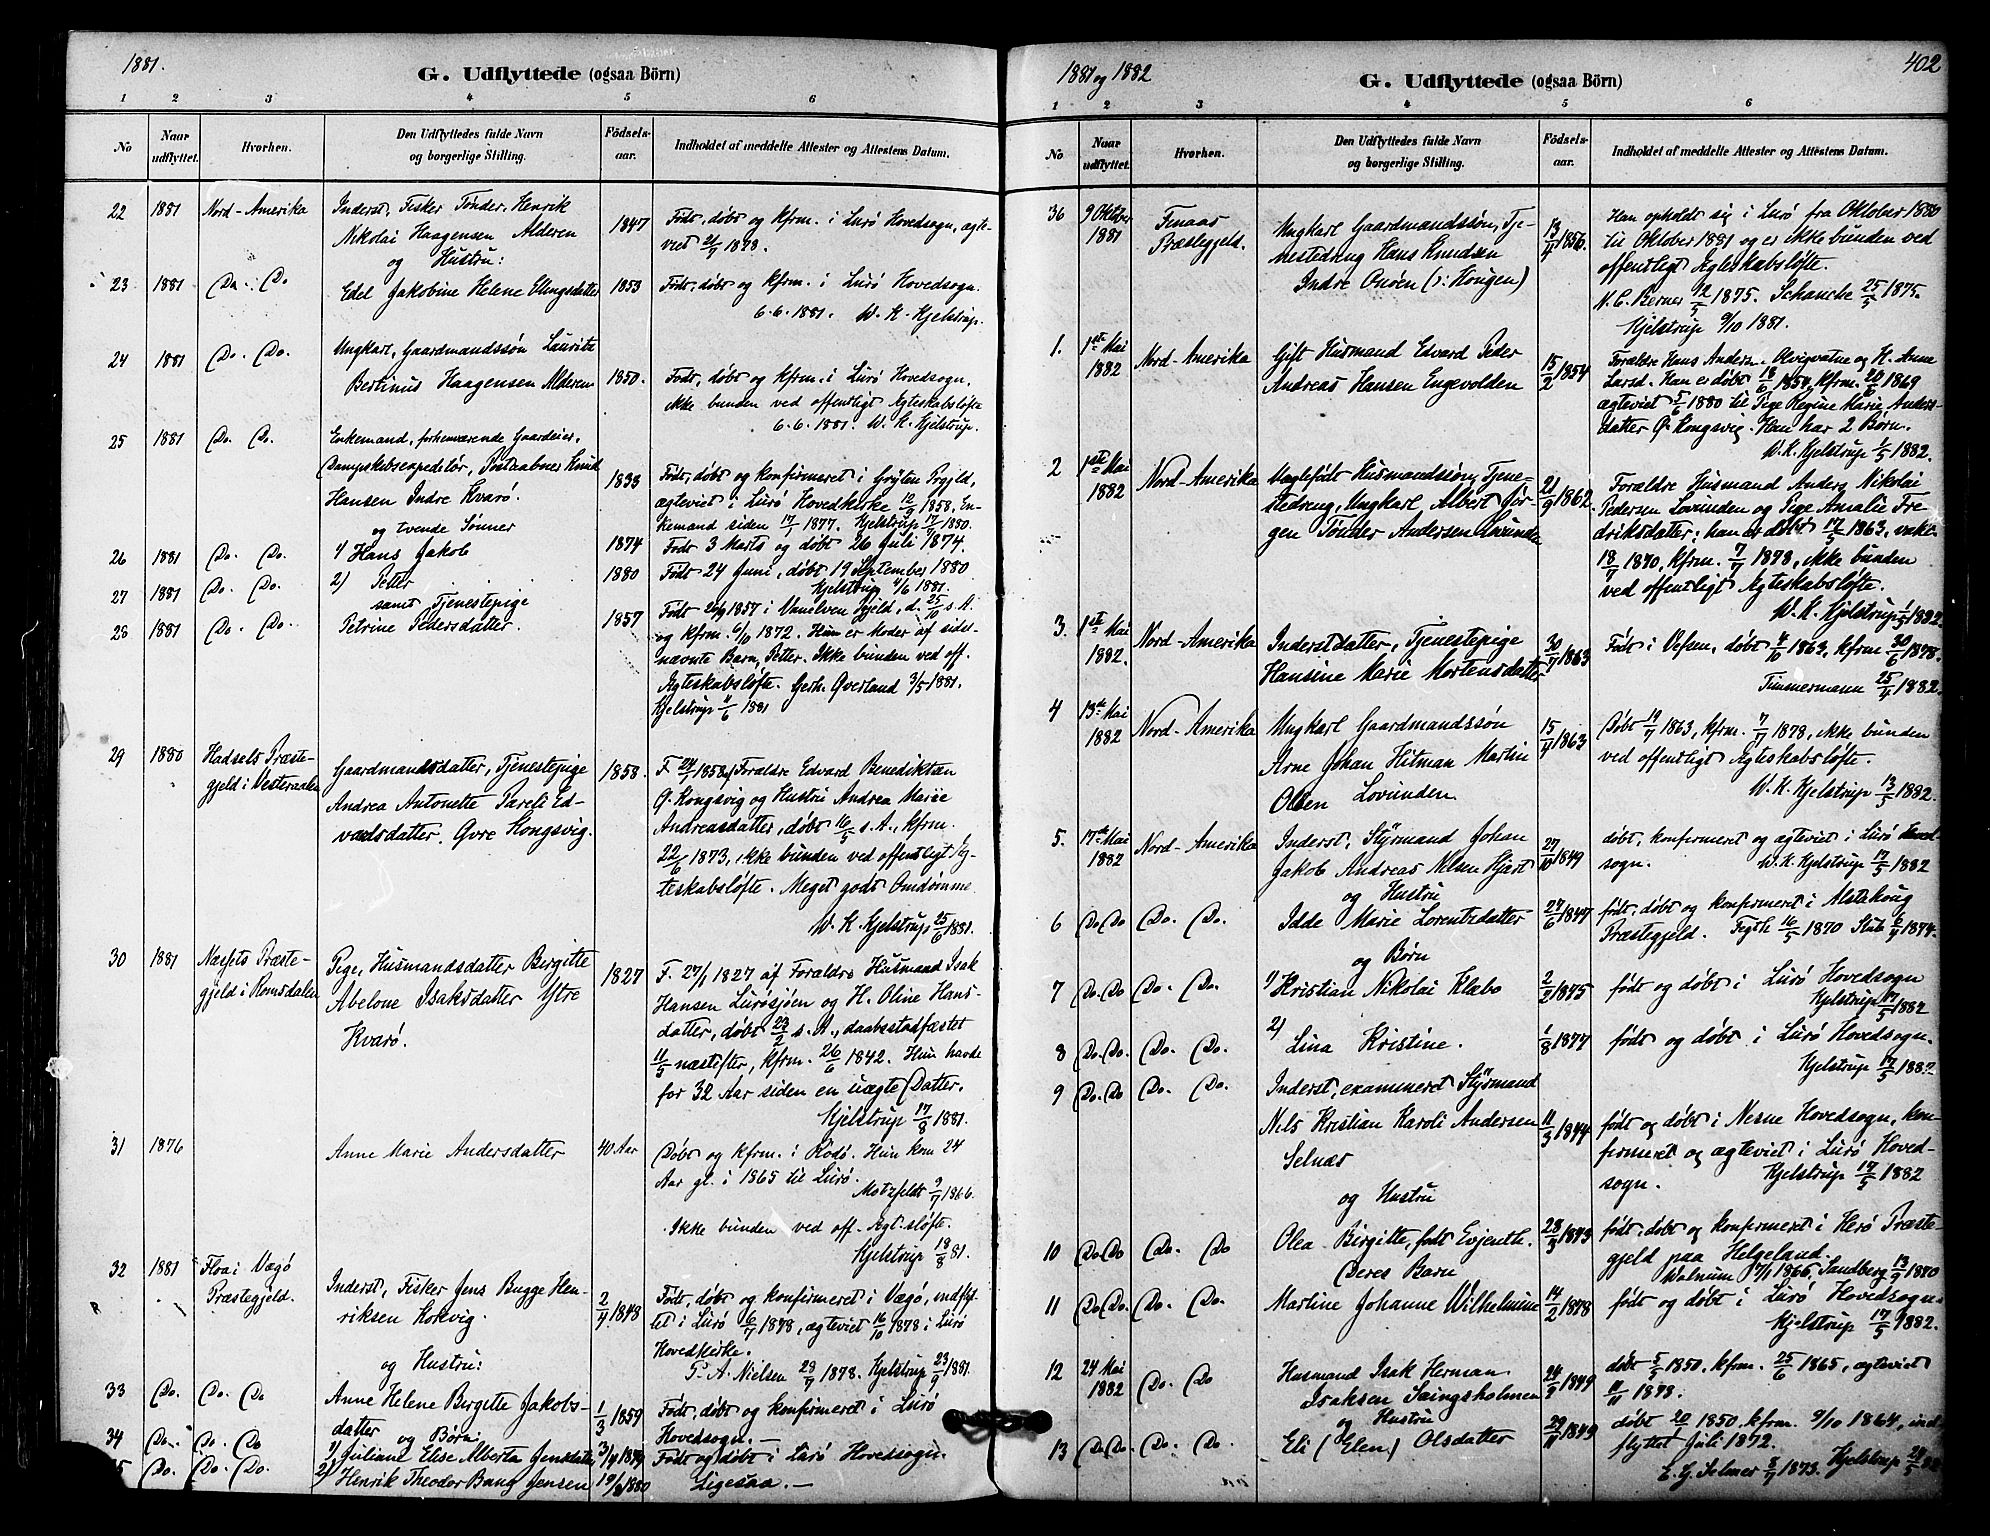 1881.
G. Udflyttede (ogsaa Börn)
1 2 3 4 5 6
No
Naar udflyttet.
Hvorhen.
Den Udflyttedes fulde Navn
og borgerlige Stilling.
Födsels-aar.
Indholdet af meddelte Attester og Attestens Datum.
22 1881 Nord-Amerika Inderst, Fisker Tönder Henrik
Nikolai Haagensen Alderen 1847 Födt, döbt og kfrm. i Lurö Hovedsogn, ægte-
og Hustru: viet 21/9 1878.
23 1881 Do. Do Edel Jakobine Helene Ellingsdatter 1853 Födt, döbt og kfrm. i Lurö Hovedsogn.
6.6.1881. W. K. Kjelstrup.
24 1881 Do. Do. Ungkarl, Gaardmandssön Lauritz
Bertinus Haagensen Alderen 1850. Födt, döbt og kfrm. i Lurö Hovedsogn.
ikke bunden ved offentligt Ægteskabslöfte
6.6.1881. W. K. Kjelstrup.
25 1881 Do. Do. Enkemand, forhenværende Gaardeier,
Dampskibsexpeditör, Postaabner Knud
Hansen Indre Kvarö. 1833 Födt, döbt og konfirmeret i Grÿten Prgjld,
ægteviet i Lurö Hovedkirke 12/9 1858. En-
og tvende Sönner kemand siden 17/1 1877. Kjelstrup 17/9 1880.
26 1881 Do. Do. 1) Hans Jakob 1874 Födt 3 Marts og döbt 26 Juli 1874.
27 1881 Do. Do. 2) Petter 1880 Födt 24 Juni, döbt 19 September 1880.
samt Tjenestepige Kjelstrup 4/6 1881.
28 1881 Do. Do. Petrine Pedersdatter. 1857 Födt 26/9 1857 i Vanelven Pgjeld, d. 25/10 s. A.
og kfrm. 6/10 1872. Hun er Moder af sidst-
nævnte Barn, Petter. Ikke bunden ved off.
Ægteskabslöfte. Gerh. Qverland 3/5 1881.
Kjelstrup 4/6 1881
29 1880 Hadsels Præste-
gjeld i Vesteraalen Gaardmandsdatter, Tjenestepige 1858. F. 24/1 1858 af Forældre Edvard Benediktsen
Andrea Antonette Pareli Ed- Ø. Kongsvig og Hustru Andrea Marie
vardsdatter. Øvre Kongsvig. Andreasdatter, döbt 16/5 s. A., kfrm.
22/6 1873, ikke bunden ved offentligt Æg-
teskabslöfte. Meget godt Omdömme.
W. K. Kjelstrup 25/6 1881.
30 1881 Næsets Præste-
gjeld i Romsdalen Pige, Husmandsdatter Bergitte 1827 F. 27/1 1827 af Forældre Husmand Isak
Abelone Isaksdatter Ytre Hansen Lurösjöen og H. Oline Hans-
Kvarö. datter, döbt 23/2 s. A., daabsstadfæstet
11/5 næstefter, kfrm. 26/6 1842. Hun havde
for 32 Aar siden en uægte Datter.
Kjelstrup 17/8 1881.
31 1876 Anne Marie Andersdatter 40 Aar Döbt og kfrm. i Rödö. Hun kom 24
Aar gl. i 1865 til Lurö.
Motzfeldt 9/7 1866.
Ikke bunden ved off. Ægt.slöfte.
Kjelstrup 18/8 81.
32 1881 Floa i Vægö
Præstegjeld. Inderst, Fisker Jens Bugge Hen- 2/4 1848 Födt, döbt og konfirmeret i Vægö, indflyt-
riksen Kokvig. tet i Lurö 6/7 1878, ægteviet 16/10 1878 i Lurö
og Hustru: Hovedkirke.
P. A. Nielsen 23/9 1878. Kjelstrup 23/9 1881.
33 Do. Do. Do Anne Helene Birgitte Jakobs- 1/3 1859 Födt, döbt og konfirmeret i Lurö
datter og Börn: Hovedsogn.—
34 Do. Do. Do 1) Juliane Elise Alberta Jensdatter 3/4 1879 Födt og döbt i Lurö Hovedsogn.
Do. Do. Do. 2) Henrik Theodor Bang Jensen 1880 Ligesaa.—
1881 og 1882
G. Udflyttede (ogsaa Börn)
402
1 2 3 4 5 6
No
Naar udflyttet.
Hvorhen.
Den Udflyttedes fulde Navn
og borgerlige Stilling.
Födsels-aar.
Indholdet af meddelte Attester og Attestens Datum.
36 9 Oktober
1881 Præstegjeld. Ungkarl Gaardmandssön, Tje-
nestedreng Hans Knudsen 13/4 1856. Han opholdt sig i Lurö fra Oktober 1880
Indre Onöen til Oktober 1881 og er ikke bunden ved
offentligt Ægteskabslöfte.
N. C. Berner 12/5 1875. Schanche 25/5 1875.
Kjelstrup 9/10 1881.
1. 1ste Mai
1882 Nord-Amerika Gift Husmand Edvard Peder
Andreas Hansen Engevolden 15/2 1854 Forældre Hans Andersn. Olvigvatne og H. Anne
Larsd. Han er döbt 18/6 1850, kfrm. 20/6 1869
ægteviet 5/6 1880 til Pige Regine Marie Anders-
datter Ø. Kongsvig. Han har 2 Börn.
W. K. Kjelstrup 1/5 1882.
2 1ste Mai
1882 Nord-Amerika Uægtefödt Husmandssön, Tjene-
stedreng, Ungkarl Albert Jör-
gen Tönder Andersen Lovunden 21/9 1862. Forældre Husmand Anders Nikolai
Pedersen Lovunden og Pige Amalie Fre
driksdatter; han er döbt 17/5 1863, vakc.
18/7 1870, kfrm. 7/7 1878, ikke bunden
ved offentligt Ægteskabslöfte.
W. K. Kjelstrup 1/5 1882.
3. 1ste Mai
1882. Nord-Amerika Inderstdatter, Tjenestepige
Hansine Marie Mortensdatter 30/7 1863 Födt i Vefsen, döbt 4/10 1863, kfrm 30/6 1878.
Timmermann 25/4 1882.
4 13de Mai
1882 Nord-Amerika Ungkarl Gaardmandssön
Arne Johan Hitman Martin
Olsen Lovunden. 15/4 1863 Döbt 19/7 1863, kfrm. 7/7 1878, ikke bunden
ved offentligt Ægteskabslöfte.
W. K. Kjelstrup 13/5 1882.
5. 17de Mai
1882 Nord-Amerika Inderst, Styrmand Johan
Jakob Andreas Nilsen Hjart
og Hustru 27/10 1849 döbt, konfirmeret og ægteviet i Lurö Hoved
sogn. W. K. Kjelstrup 17/5 1882
6 Do Do Do. Do. Idde Marie Lorentsdatter 27/6 1847 födt, döbt og konfirmeret i Alstahoug
og Börn Præstegjeld. 16/5 1870 1874.
7 Do. Do Do. Do. 1) Kristian Nikolai Klæbo 2/2 1875 födt og döbt i Lurö Hovedsogn
Kjelstrup 17/5 1882
8 Do. Do. Do. Do. 2) Lina Kristine. 1/8 1877 födt og döbt i Lurö Hovedsogn.
Kjelstrup 17/5 1882
9 Do. Do Do. Do. Inderst, examineret Styrmand
Nils Kristian Karoli Andersen
Selnæs 11/3 1844 födt og döbt i Nesne Hovedsogn, kon-
firmeret og ægteviet i Lurö Hoved-
sogn. Kjelstrup 17/5 1882
og Hustru
10 Do Do Do. Do Olea Birgitte, födt Evjenth. 23/3 1843 födt, döbt og konfirmeret i Herö Præste-
Deres Barn gjeld paa Helgeland.
Walnum 7/1 1866, Sandberg 13/9 1870
11 Do. Do. Do. Do. Martine Johanne Wilhelmine 14/2 1878 födt og döbt i Lurö Hovedsogn.
Kjelstrup 17/5 1882.
12 24 Mai
1882 Do. Do Husmand Isak Herman
Isaksen Saingsholmen
og Hustru 24/2 1849 döbt 5/5 1850, kfrm. 25/6 1865, ægteviet
11/11 1878.
13 Do Do Do. Do. Eli (Elen) Olsdatter 29/11 1849 döbt 20/1 1850, kfrm. 9/10 1864, ind
flyttet Juli 1872.
E. G. Selmer 1873. Kjelstrup 24/5 82